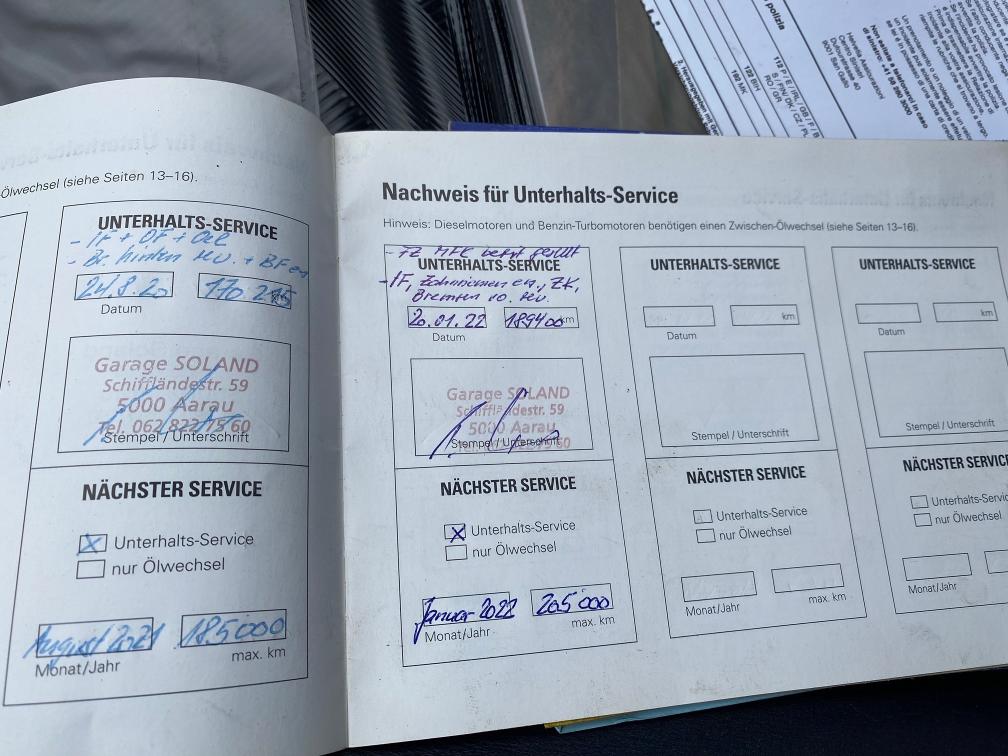 Ölwechsel (siehe Seiten 13–16).
UNTERHALTS-SERVICE
- IF + ÖF + Oel
- Br. hinten rev. + BF
24.8.20 170 215
Datum
Garage SOLAND
Schiffländestr. 59
5000 Aarau
Tel. 062 822 75 60
Stempel / Unterschrift
NÄCHSTER SERVICE
X Unterhalts-Service
nur Ölwechsel
August 2021 185000
Monat/Jahr max. km
Nachweis für Unterhalts-Service
Hinweis: Dieselmotoren und Benzin-Turbomotoren benötigen einen Zwischen-Ölwechsel (siehe Seiten 13–16).
- FZ MFK
UNTERHALTS-SERVICE
- IF, Zahnriemen ern., ZK,
Bremsen vo. rev.
20.01.22 189400 km
Datum
Garage SOLAND
Schiffländestr. 59
5000 Aarau
Stempel / Unterschrift
NÄCHSTER SERVICE
X Unterhalts-Service
nur Ölwechsel
Januar 2022 205000
Monat/Jahr max. km
UNTERHALTS-SERVICE
km
Datum
Stempel / Unterschrift
NÄCHSTER SERVICE
Unterhalts-Service
nur Ölwechsel
Monat/Jahr max. km
UNTERHALTS-SERVICE
km
Datum
Stempel / Unterschrift
NÄCHSTER SERVICE
Unterhalts-Service
nur Ölwechsel
Monat/Jahr
polizia
Helvetia Assicurazioni
Centro Sinistri
Dufourstrasse 40
9001 San Gallo
Non esitate a telefonarci in caso